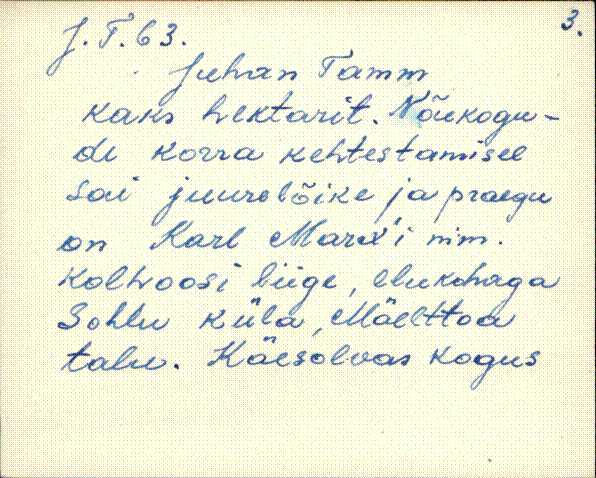 3.
J. T. 63.
Juhan Tamm
kaks hektarit. Nõukogu-
de korra kehtestamisel
sai juurelõike ja praegu
on Karl Marx'i nim.
kolhoosi liige, elukohaga
Sohlu küla, Mäeltoa
talu. Käesolvas kogus